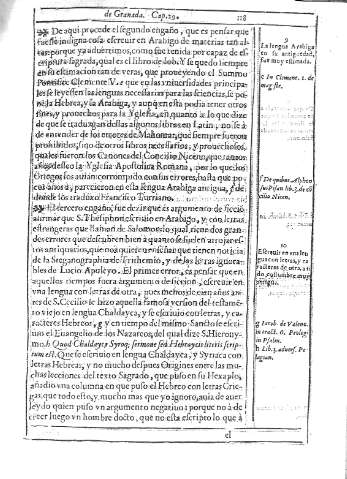 de Granada. Cap. 19. 118
De aqui procede el segundo engaño, que es pensar que
fuesse indigna cosa escreuir en Arabigo de materias tan al-
tas: porque ya aduertimos, como fue tenida por capaz de es-
criptura sagrada, qual es el libro de Iob. Y se quedo siempre
en su estimacion tan de veras, que proueyendo el Summo
Pontifice Clemente V. c que en las vniuersidades principa-
les se leyessen las lenguas necessarias para las sciencias, se po-
ne la Hebrea, y la Arabiga, y aunque en esta podia tener otros
fines, y prouechos para la Yglesia, en quanto a lo que dize
de que se traduzgan de ellas algunos libros en Latin, no se à
de entender de los errores de Mahoma, que siempre fueron
prohibidos, sino de otros libros necessarios, y prouechosos,
quales fueron los Canones del Concilio Niceno, que
desseo la Yglesia Apostolica Romana, por lo que los
Griegos los auian corrompido con sus errores, hasta que po-
cos años à, parecieron en esta lengua Arabiga antigua, d de
donde los traduxo Francisco Turriano.
El tercero engaño, fue dezir que es argumento de ficcio
afirmar que S. Thesiphon escriuio en Arabigo, y con letras
estrangeras que llaman de Salomon: lo qual tiene dos gran-
des errores que descubren bien a quanto se suelen arrojar es-
tos antiquarios, que no quieren enseñar que tienen noticia
de la Steganographia de Trithemio, y de los letras ignora-
bles de Lucio Apuleyo. El primer error, es pensar que en
aquellos tiempos fuera argumento de ficcion, escreuir en
vna lengua con letras de otra, pues menos de cien años an-
tes de S. Cecilio se hizo aquella famosa version del testamē-
to viejo en lengua Chaldayca, y se escriuio con letras, y ca-
racteres Hebreos, g y en tiempo del mismo Sancto se escri-
uio el Euangelio de los Nazareos, del qual dize S. Hierony-
mo. h Quod Chaldayco Syroq; sermone sed Hebraycis literis scrip-
tum est. Que se escriuio en lengua Chaldayca, y Syriaca con
letras Hebreas, y no mucho despues Origines entre las mu-
chas lecciones del texto Sagrado, que puso en su Hexaplo,
añadio vna columna en que puso el Hebreo con letras Grie-
gas, que todo esto, y mucho mas que yo ignoro, auia de auer
leydo quien puso vn argumento negatiuo: porque no à de
creer luego vn hombre docto, que no esta escripto lo que à
el
9
La lengua Arabiga
en su antiguedad,
fue muy estimada.
c In Clement. 1. de
magistr.
10
Escreuir en vna len-
gua con letras, y ca-
racteres de otra, an-
g Iacob. de Valent.
in tract. 6. Prolog.
in Psalm.
h Lib. 3. aduers. Pe-
lagium.